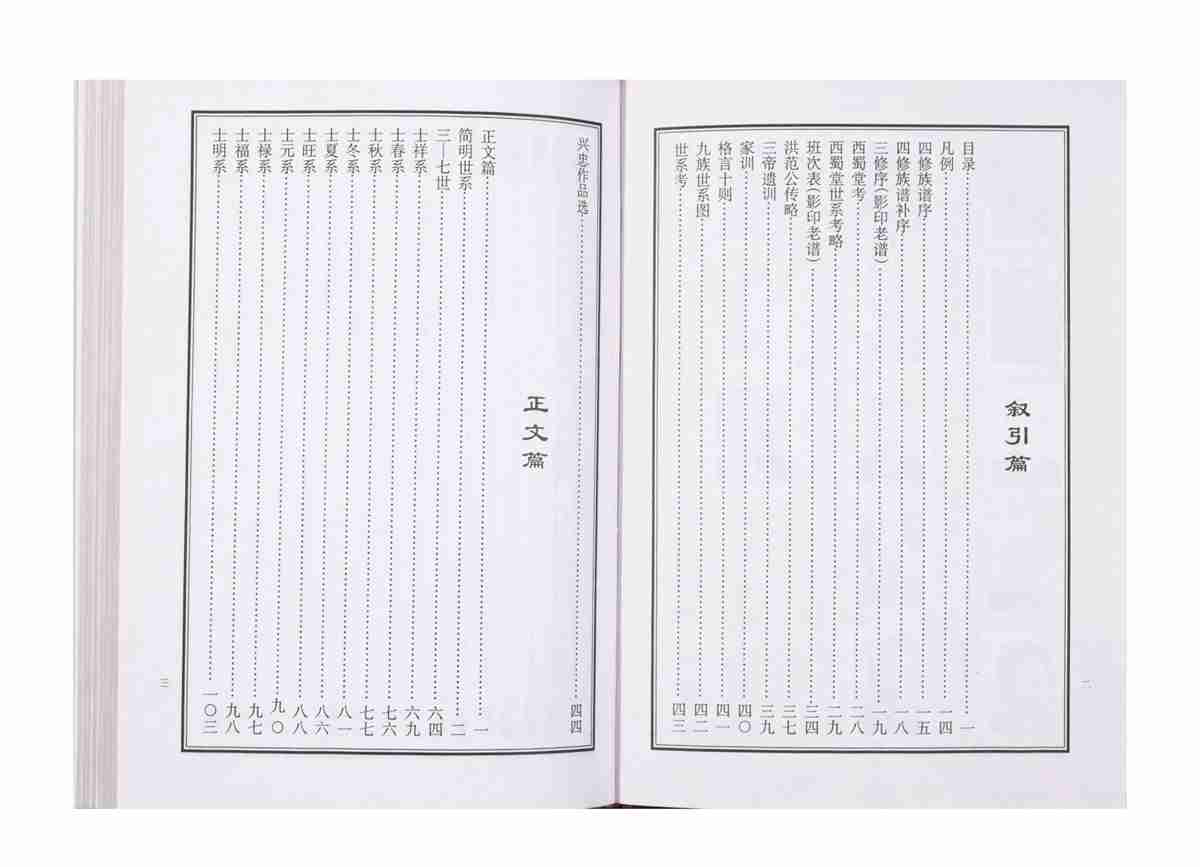 二
叙引篇
目录……一
凡例……一四
四修族谱序……一五
四修族谱补序……一八
三修序(影印老谱)……一九
西蜀堂考……二八
西蜀堂世系考略……二九
班次表(影印老谱)……三四
洪范公传略……三七
三帝遗训……三九
家训……四〇
格言十则……四一
九族世系图……四二
世系考……四三
兴忠作品选……四四
正文篇
正文篇……一
简明世系……二
三—七世……六四
士祥系……六九
士春系……七六
士秋系……七七
士冬系……八一
士夏系……八六
士旺系……八八
士元系……九〇
士禄系……九七
士福系……九八
士明系……一〇三
三